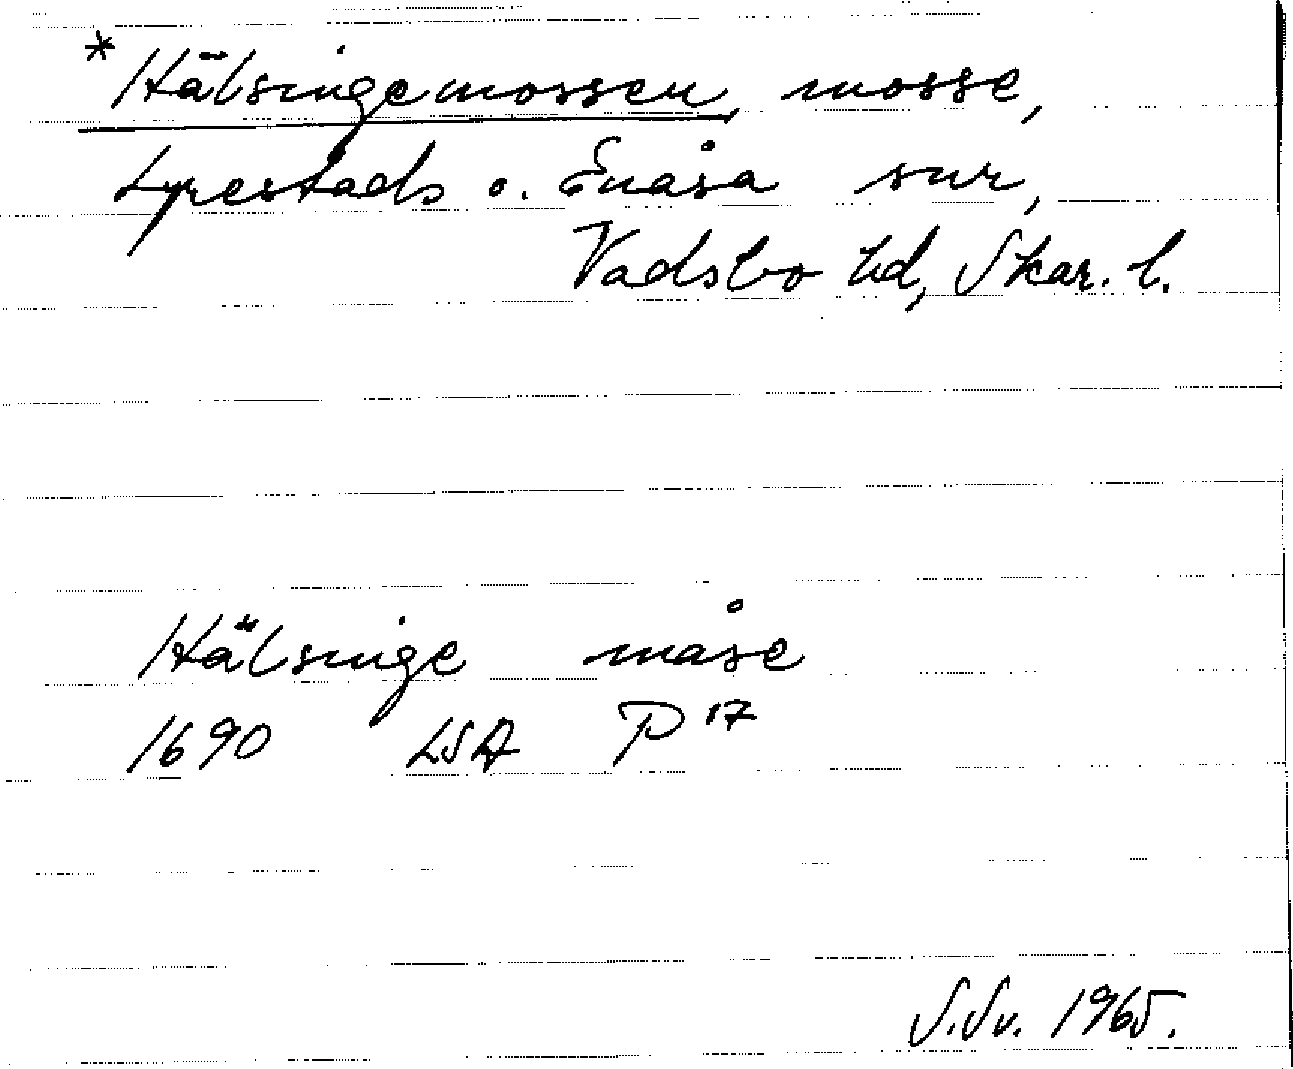 * Hälsingemossen, mosse,
Lyrestads o. Enåsa snr,
Vadsbo hd, Skar. l.
Hälsinge måse
1690 LSA P 17
S.Sv. 1965.